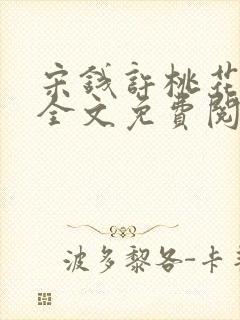 宋钱許桃花
全文免費閱
波多黎各-卡